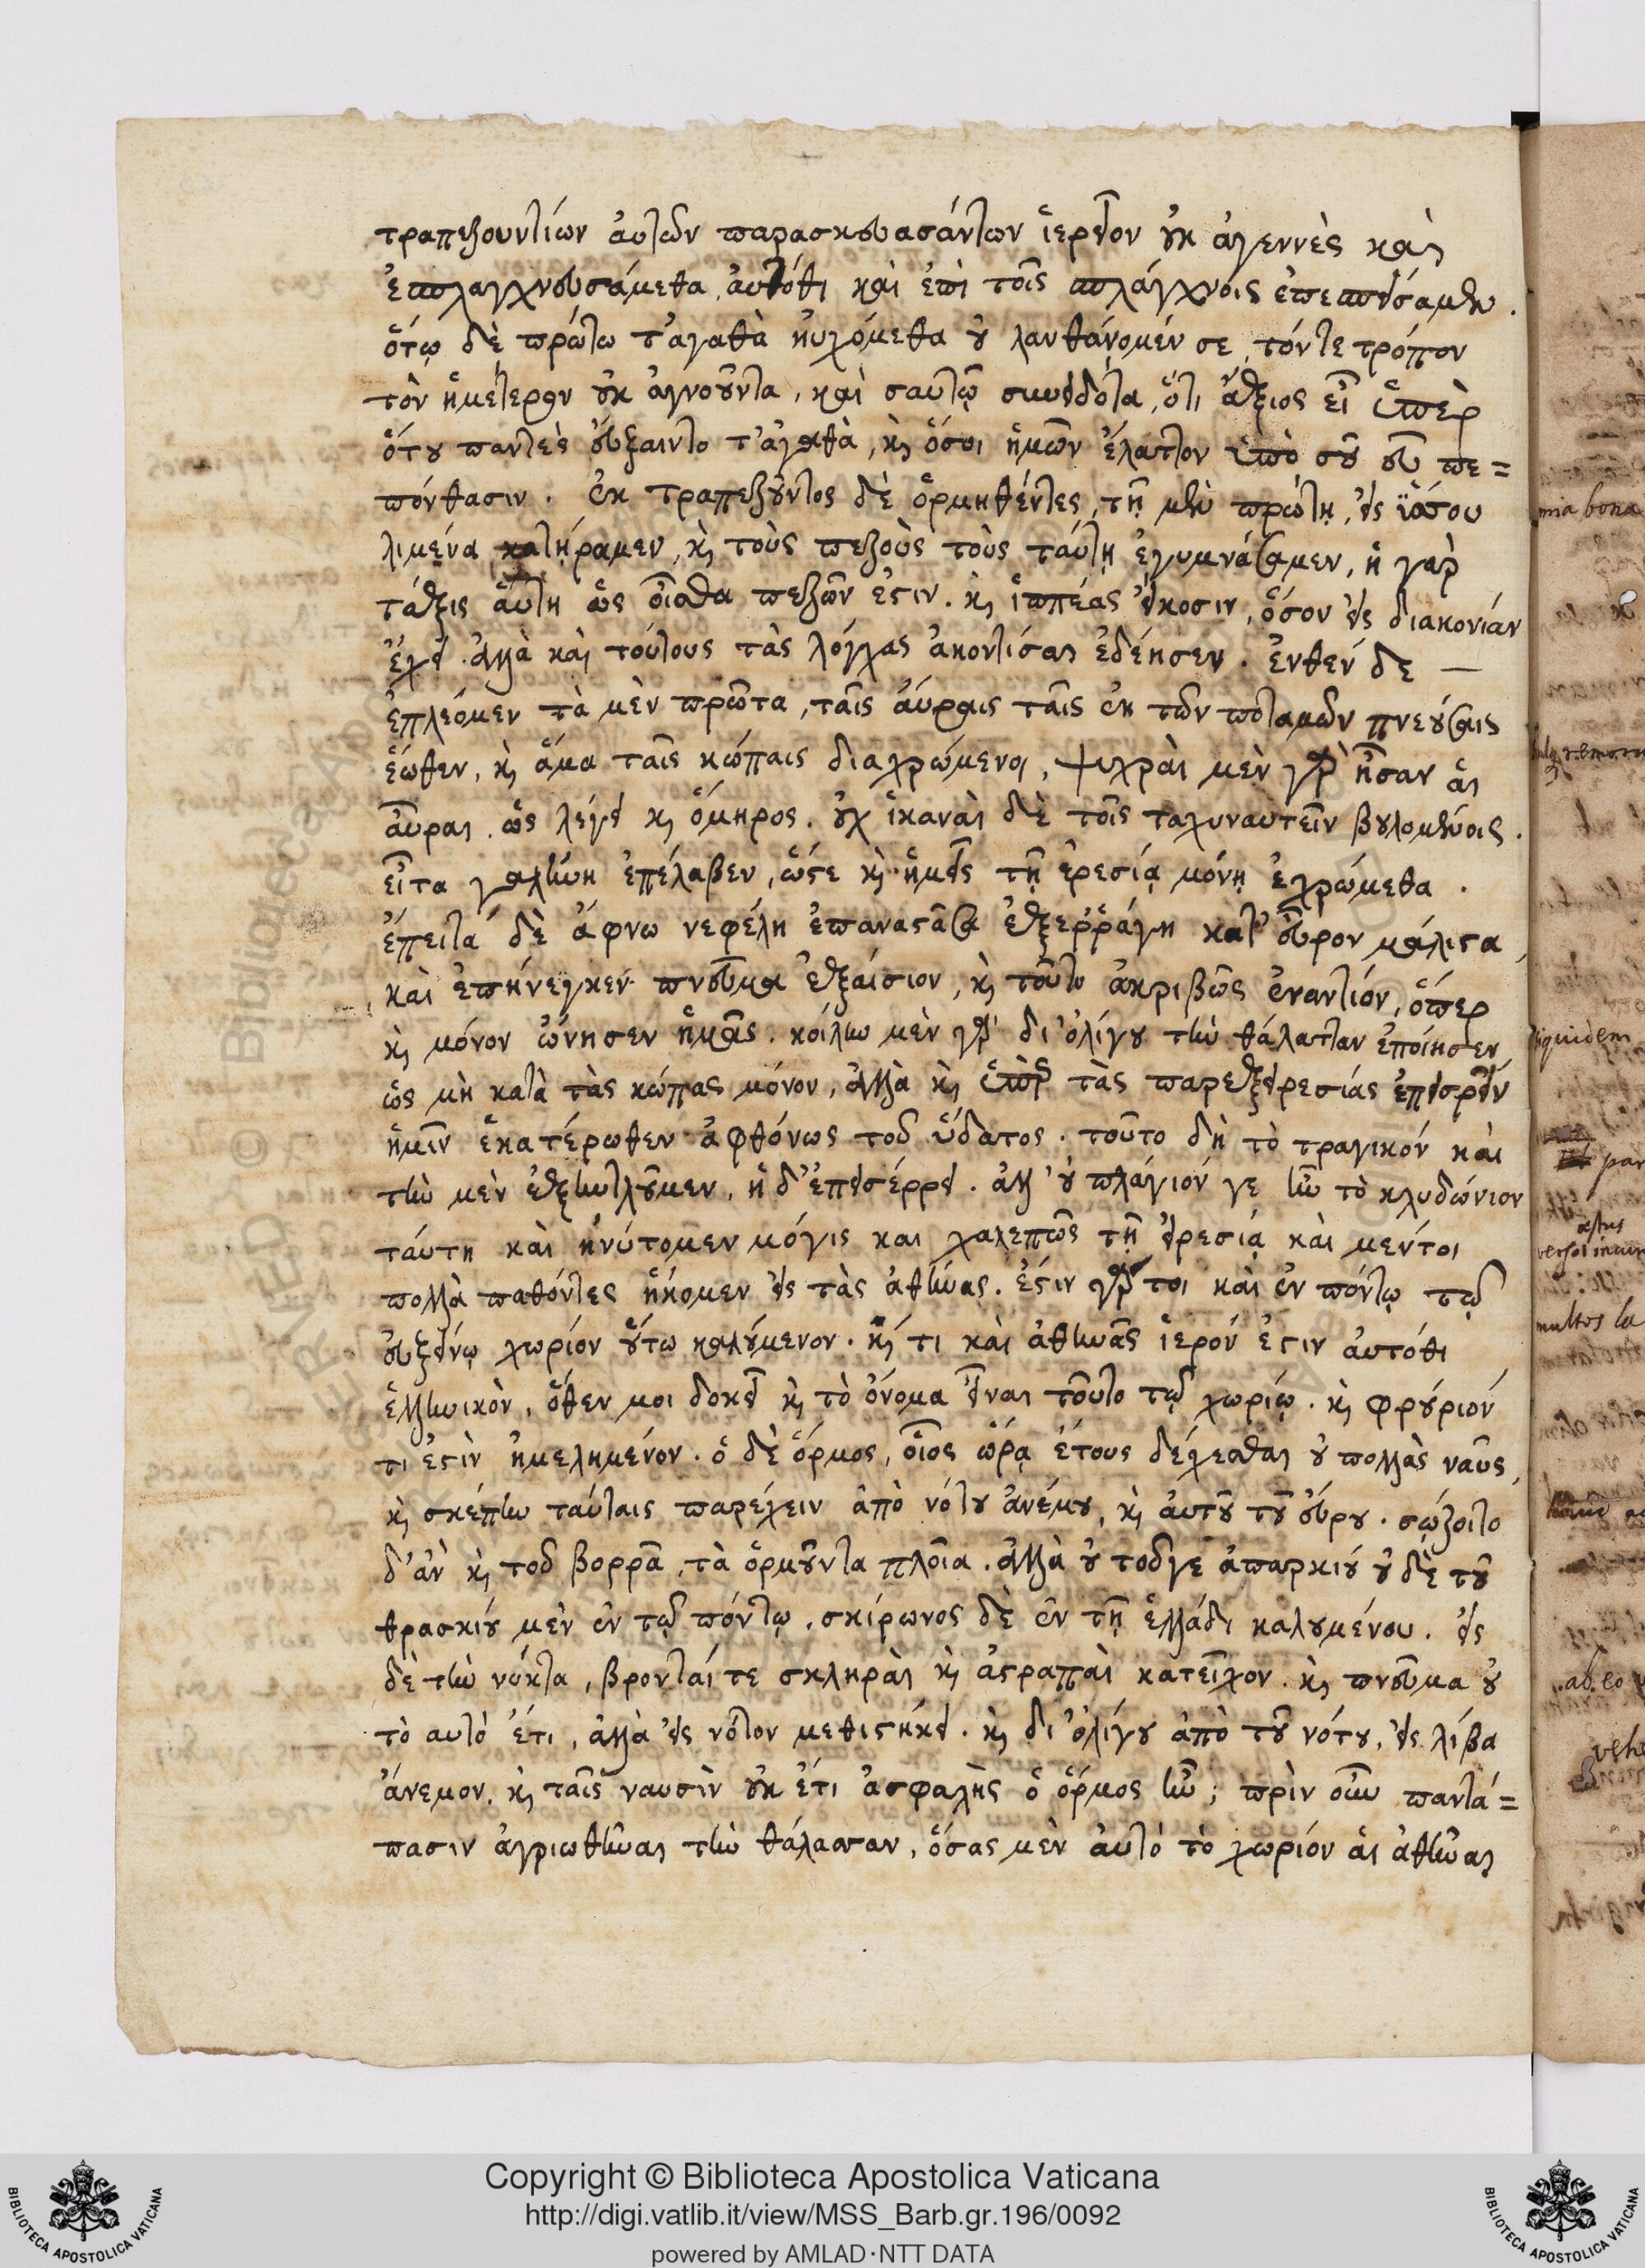 τραπεζουντίων ἀυτῶν παρασκευασάντων ἱερεῖον οὐκ ἀγεννὲς καὶ
ἐσπλαγχνευσάμεθα ἀυτόθι καὶ ἐπὶ τοῖς σπλάγχνοις ἐπεσπείσαμεν.
ὅτῳ δὲ πρώτω τ'αγαθὰ ηὐχόμεθα οὐ λανθάνομέν σε, τόντε τρόπον
τὸν ἡμέτερον οὐκ ἀγνοοῦντα, καὶ σαυτῷ συνειδότα, ὅτι ἄξιος εἶ ὑπὲρ
ὅτου παντες εὔξαιντο τ'ἀγαθὰ, κ̀ ὅσοι ἡμῶν ἔλαττον ὑπὸ σοῦ εὖ πε=
πόνθασιν. ἐκ τραπεζοῦντος δὲ ὁρμηθέντες, τῇ μὲν πρώτῃ, εἰς ὕσσου
λιμένα κατήραμεν, κ̀ τοὺς πεζοὺς τοὺς ταύτῃ ἐγυμνάσαμεν, ἡ γαρ
τάξις ἅυτη ὡς οἶσθα πεζῶν ἐστιν. κ̀ ἱππέας εἴκοσιν, ὅσον εἰς διακονίαν
ἔχει. ἀλλὰ καὶ τούτους τὰς λόγχας ἀκοντίσαι ἐδέησεν. ἔνθεν δε —
ἐπλεόμεν τὰ μὲν πρῶτα, ταῖς ἀύραις ταῖς ἐκ τῶν ποταμῶν πνεούσαις
ἕωθεν, κ̀ ἅμα ταῖς κώπαις διαχρώμενοι, ψυχραὶ μὲν γὰρ ἦσαν ἁι
αὖραι, ὡς λέγει κ̀ ὅμηρος. οὐχ ἱκαναὶ δὲ τοῖς ταχυναυτεῖν βουλομένοις.
εἶτα γαλήνη ἐπέλαβεν, ὥστε κ̀ ἡμεῖς τῇ εἰρεσίᾳ μόνῃ ἐχρώμεθα.
ἔπειτα δὲ ἄφνω νεφέλη ἐπαναστᾶσα ἐξεῤῥάγη κατ' εὖρον μάλιστα,
καὶ ἐπήνεγκεν πνεῦμα ἐξαίσιον, κ̀ τοῦτο ἀκριβῶς ἐναντίον, ὅπερ
κ̀ μόνον ὤνησεν ἡμᾶς. κοίλην μὲν γὰρ δι' ὀλίγου τὴν θάλατταν ἐποίησεν
ὡς μὴ κατὰ τὰς κώπας μόνον, ἀλλὰ κ̀ ὑπὲρ τὰς παρεξειρεσίας ἐπεισρεῖν
ἡμῖν ἑκατέρωθεν ἀφθόνως τοῦ ὕδατος. τοῦτο δὴ τὸ τραγικόν καὶ
τὴν μὲν ἐξηντλοῦμεν, ἡ δ' ἐπεισέρρει. ἀλλ' οὐ πλάγιόν γε ἦν τὸ κλυδώνιον
ταύτη καὶ ἠνύτομεν μόγις και χαλεπῶς τῇ εἰρεσίᾳ καὶ μέντοι
πολλὰ παθόντες ἥκομεν εἰς τὰς ἀθήνας. ἐστιν γάρ τοι καὶ ἐν πόντῳ τῷ
εὐξείνῳ χωρίον οὕτω καλούμενον. κ̀ τι καὶ ἀθηνᾶς ἱερόν ἐστιν ἀυτόθι
ἑλληνικὸν, ὅθεν μοι δοκεῖ κ̀ τὸ ὄνομα εἶναι τοῦτο τῷ χωρίῳ. κ̀ φρούριόν
τι ἐστὶν ἠμελημένον. ὁ δὲ ὅρμος, οἷος ὥρᾳ ἔτους δέχεσθαι οὐ πολλὰς ναῦς,
κ̀ σκέπην ταύταις παρέχειν ἀπὸ νότου ἀνέμου, κ̀ ἀυτοῦ τοῦ εὔρου. σώζοιτο
δ' ἀν κ̀ τοῦ βορρᾶ, τὰ ὁρμοῦντα πλοῖα. ἀλλὰ οὐ τοῦγε ἀπαρκίου οὐδὲ τοῦ
θρασκίου μὲν ἐν τῷ πόντῳ, σκίρωνος δὲ ἐν τῇ ἑλλάδι καλουμένου. εἰς
δὲ τὴν νύκτα, βρονταί τε σκληραὶ κ̀ ἀστραπαὶ κατεῖχον. κ̀ πνεῦμα οὐ
τὸ αυτὸ ἔτι, ἀλλὰ εἰς νότον μεθιστήκει. κ̀ δι' ὀλίγου ἀπὸ τοῦ νότου, εἰς λίβα
ἄνεμον, κ̀ ταῖς ναυσὶν οὐκ ἔτι ἀσφαλὴς ὁ ὅρμος ἦν; πρὶν οὖν παντά=
πασιν ἀγριωθῆναι τὴν θάλασσαν, ὅσας μὲν ἀυτὸ τὸ χωρίον ἁι ἀθῆναι
mia bona
multos la
ab eo
Copyright © Biblioteca Apostolica Vaticana
http://digi.vatlib.it/view/MSS_Barb.gr.196/0092
powered by AMLAD·NTT DATA
BIBLIOTECA APOSTOLICA VATICANA
BIBLIOTECA APOSTOLICA VATICANA